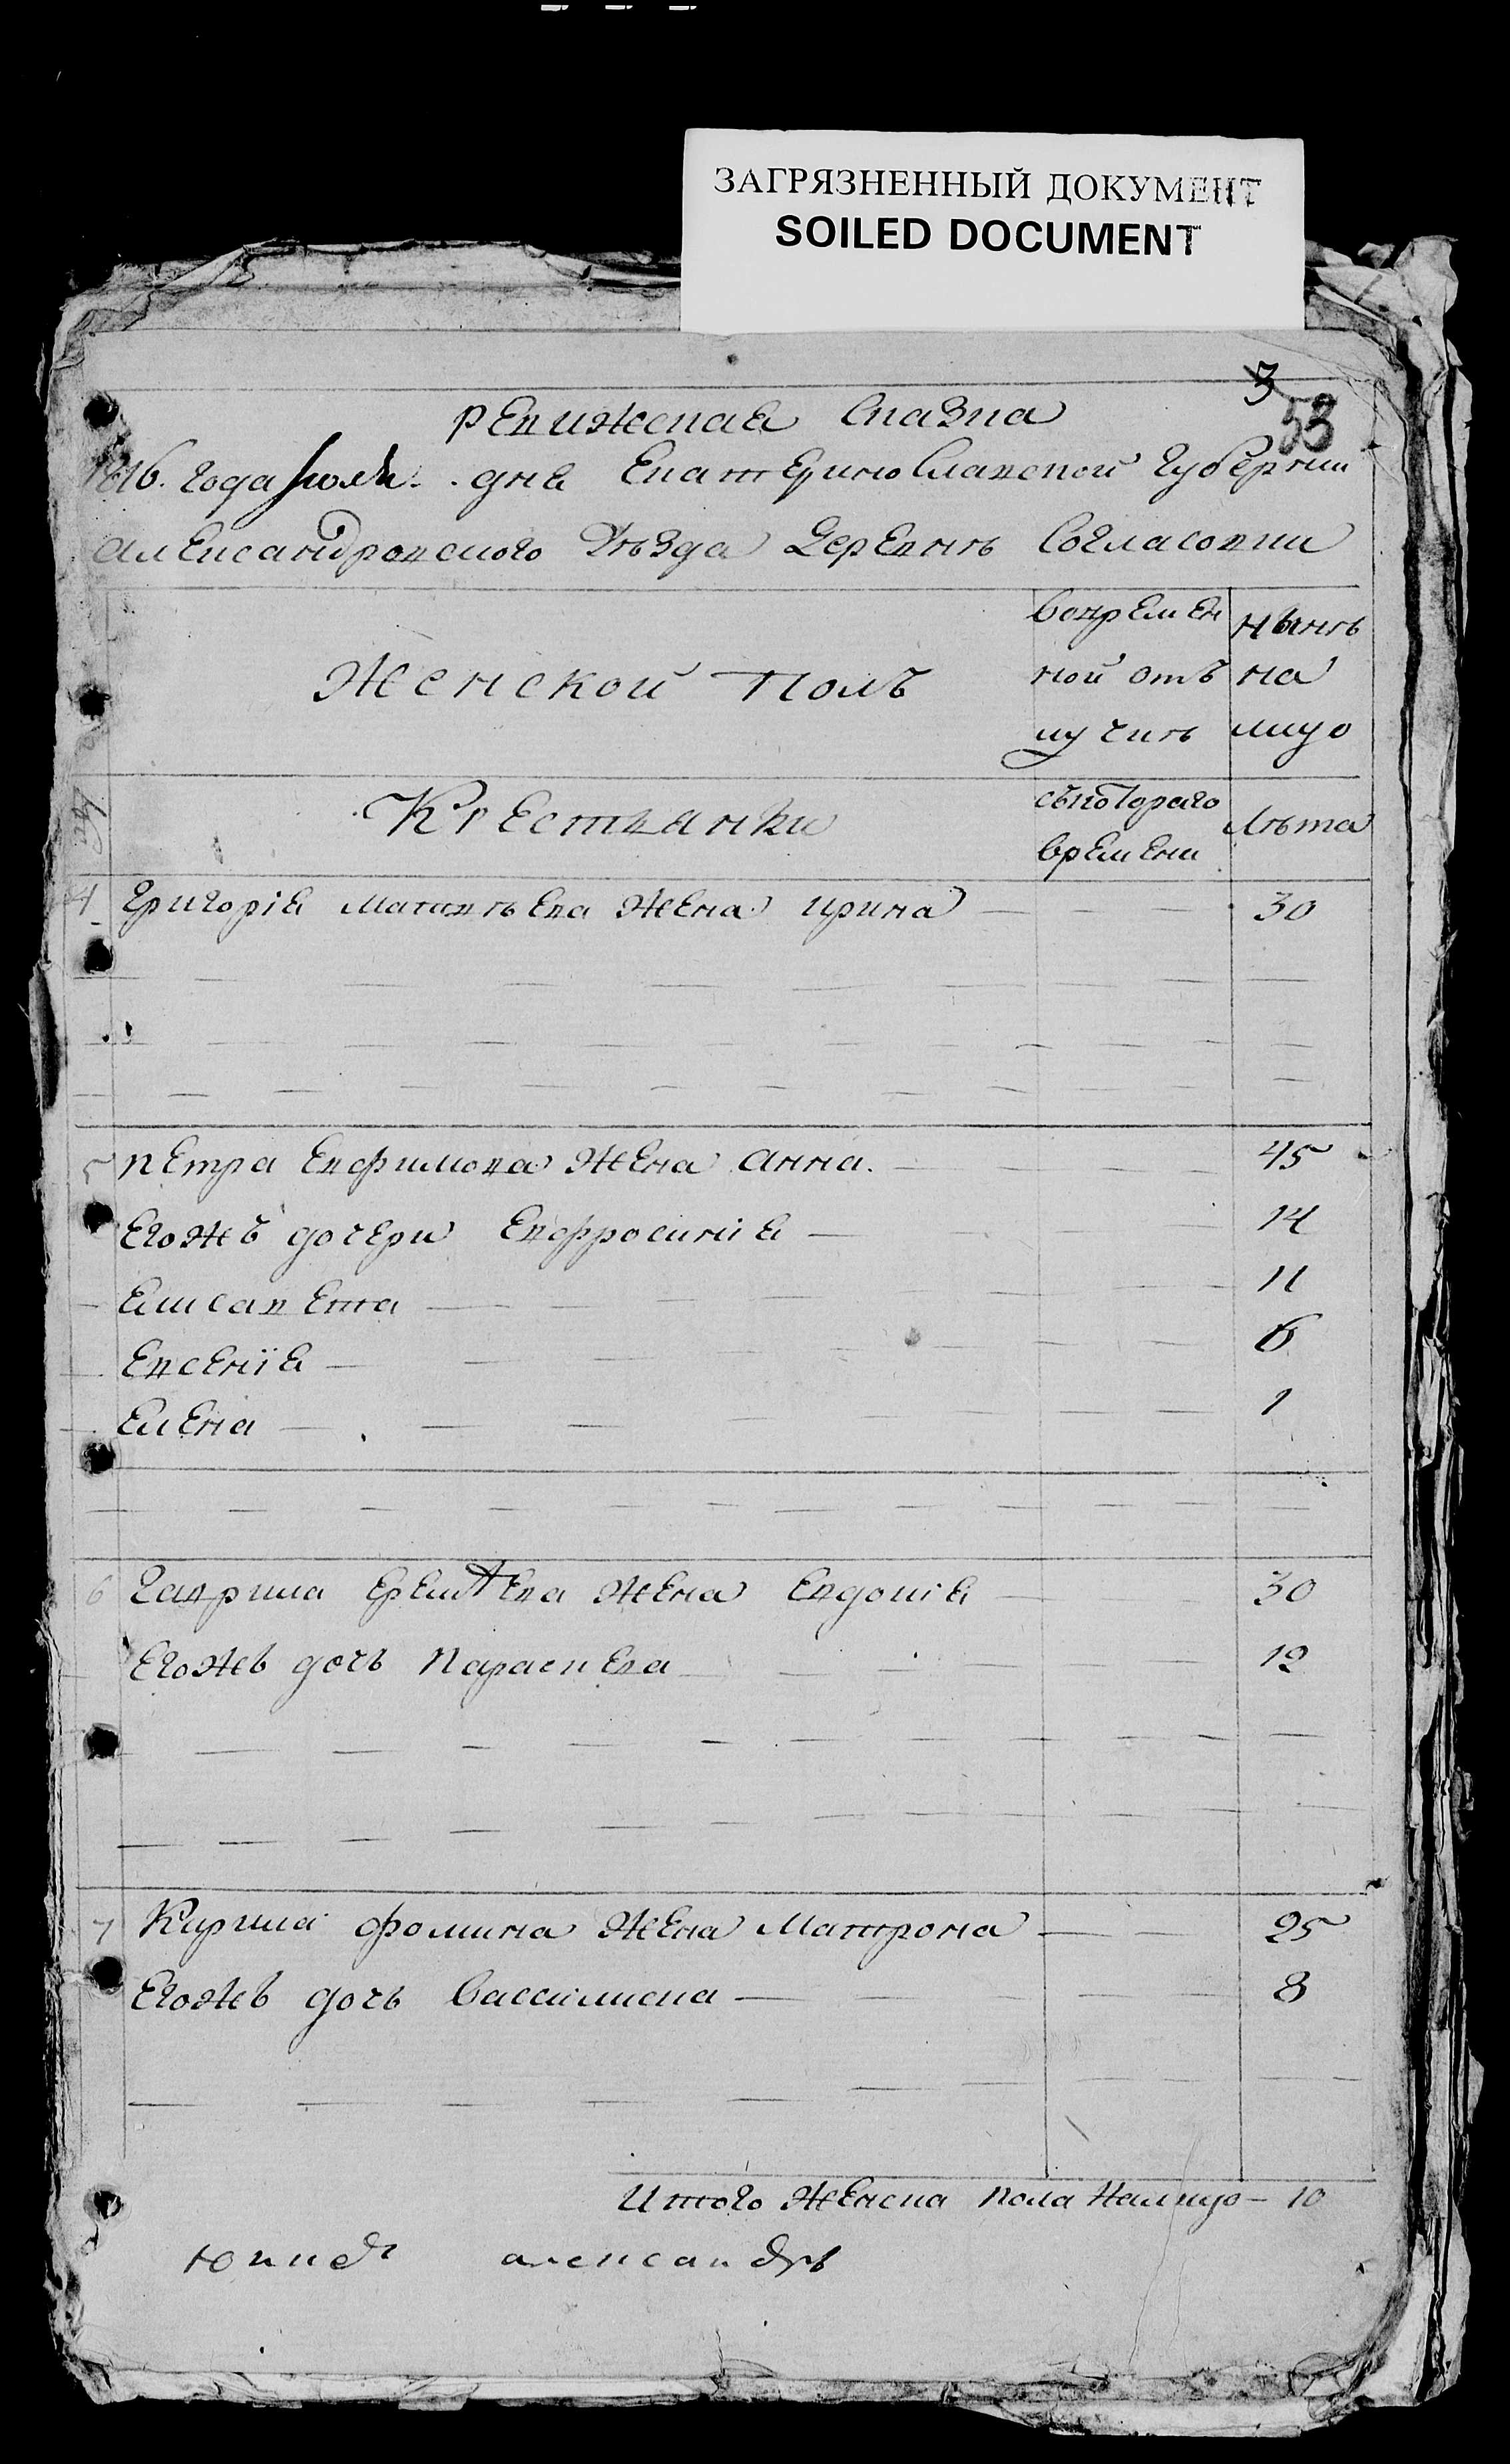 ЗАГРЯЗНЕННЫЙ ДОКУМЕНТ
SOILED DOCUMENT
3
53
ревижская Сказка
1816. года Июля . дня Екатеринославской Губернии
александровского Уѣзда Деревнѣ Согласовки
Женской Полъ
вовремен
ной отъ
лучкѣ
нынѣ
на
лицо
Крестьянки
съкотораго
времени
Лѣта
4 Григорія Матвѣева жена ирина 30
5 петра Евфимова жена анна. 45
Егожъ дочери Евфросинія 14
Елисавета 11
Евсенія 6
Елена 1
6 Гаврила Еремѣева жена Евдокія 30
Егожъ дочь Параскева 12
7 Кирила фомина жена Матрона 25
Егожъ дочь Вассилиса 8
Итого женска пола Налицо - 10
александръ